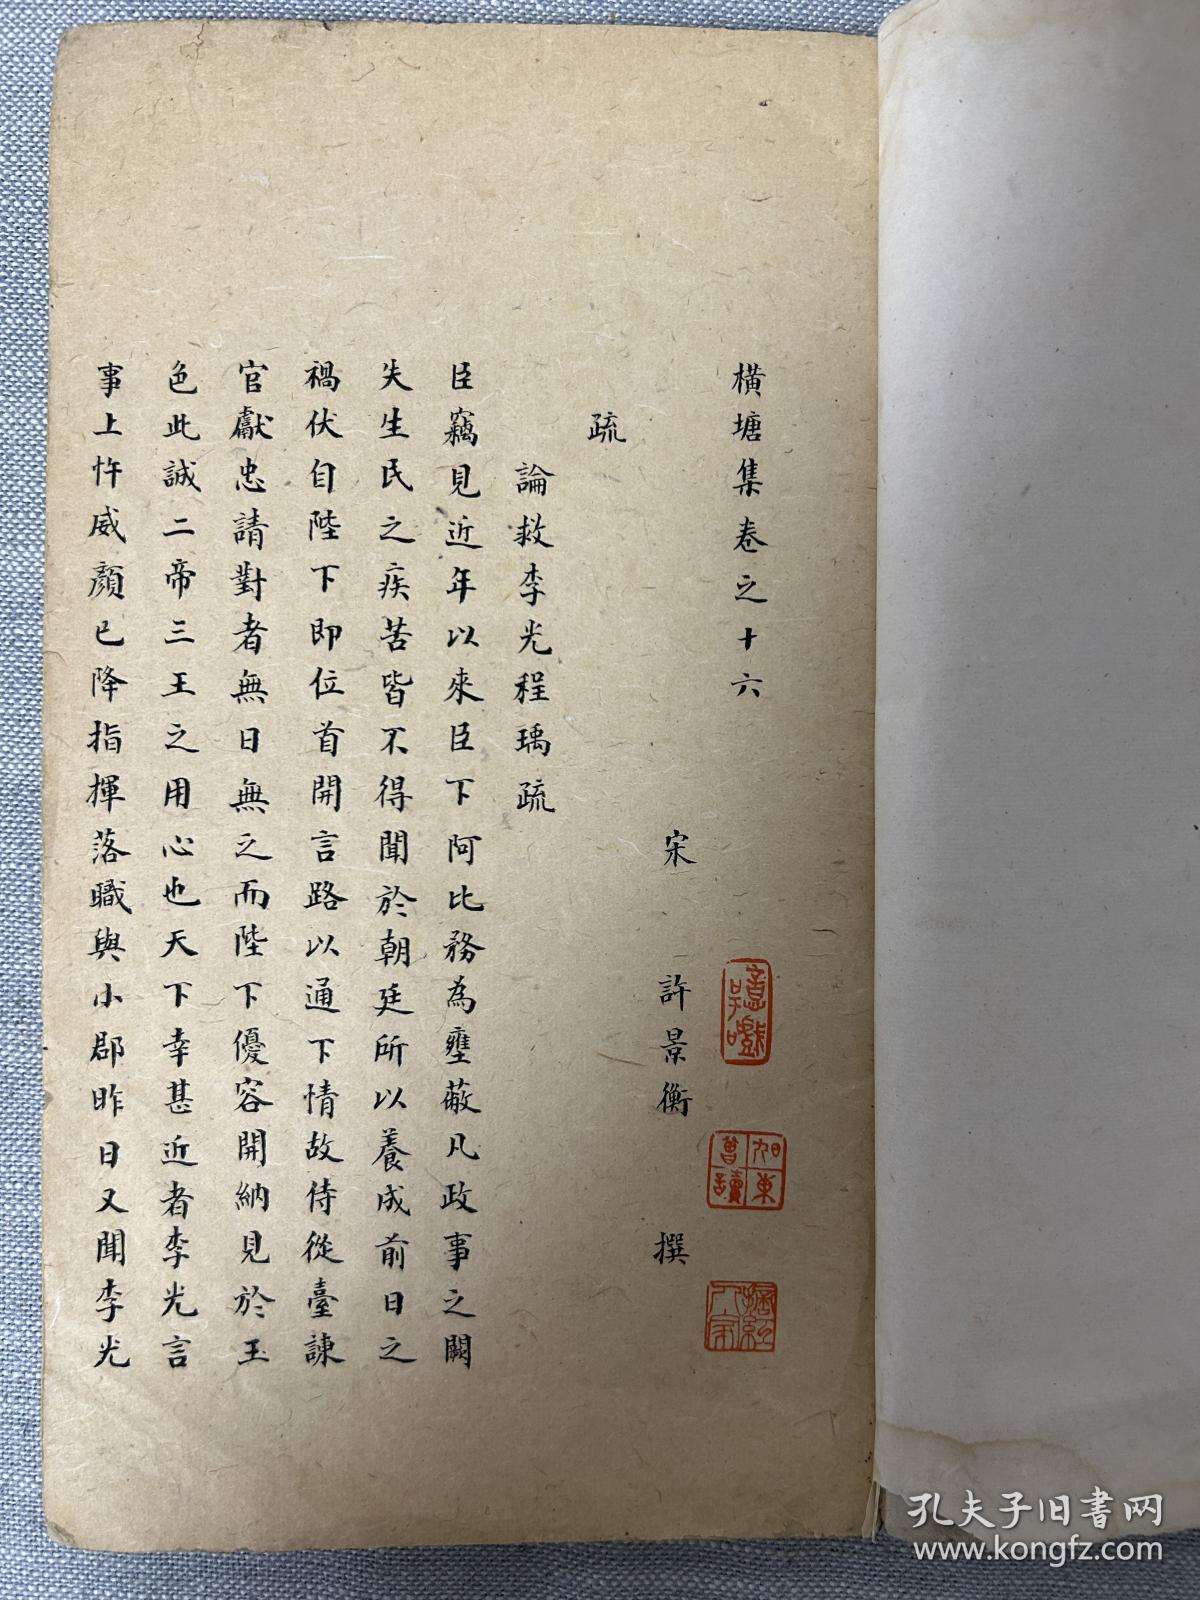 橫塘集卷之十六
宋 許景衡 撰
疏
論救李光程瑀疏
臣竊見近年以來臣下阿比務為壅蔽凡政事之闕
失生民之疾苦皆不得聞於朝廷所以養成前日之
禍伏自陛下即位首開言路以通下情故侍從臺諫
官獻忠請對者無日無之而陛下優容開納見於玉
色此誠二帝三王之用心也天下幸甚近者李光言
事上忤威顏已降指揮落職與小郡昨日又聞李光
如東
曾讀
孔夫子旧书网
www.kongfz.com